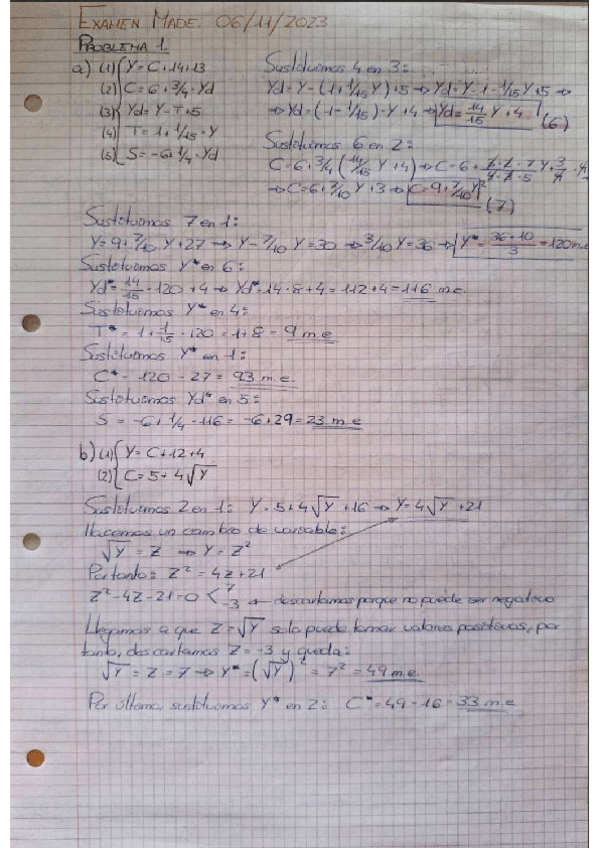 EXAMEN MADE. 06/11/2023
PROBLEMA 1.
a) (1) Y = C + 14 + 13
(2) C = 6 + 3/4 · Yd
(3) Yd = Y - T + 5
(4) T = 1 + 1/15 · Y
(5) S = -6 + 1/4 · Yd
Sustituimos 4 en 3:
Yd = Y - (1 + 1/15 Y) + 5 → Yd = Y - 1 - 1/15 Y + 5 →
→ Yd = (1 - 1/15) · Y + 4 → Yd = 14/15 Y + 4 (6)
Sustituimos 6 en 2:
C = 6 + 3/4 (14/15 Y + 4) → C = 6 +
→ C = 6 + 7/10 Y + 3 → C = 9 + 7/10 Y (7)
Sustituimos 7 en 1:
Y = 9 + 7/10 Y + 27 → Y - 7/10 Y = 30 → 3/10 Y = 36 → Y* = 36 · 10 / 3 = 120 m.e
Sustituimos Y* en 6:
Yd* = 14/15 · 120 + 4 → Yd* = 14 · 8 + 4 = 112 + 4 = 116 m.e.
Sustituimos Y* en 4:
T* = 1 + 1/15 · 120 = 1 + 8 = 9 m.e
Sustituimos Y* en 1:
C* = 120 - 27 = 93 m.e.
Sustituimos Yd* en 5:
S = -6 + 1/4 · 116 = -6 + 29 = 23 m.e
b) (1) Y = C + 12 + 4
(2) C = 5 + 4√Y
Sustituimos 2 en 1: Y = 5 + 4√Y + 16 → Y = 4√Y + 21
Hacemos un cambio de variable:
√Y = Z → Y = Z²
Por tanto: Z² = 4Z + 21
Z² - 4Z - 21 = 0 < 7
-3 ← descartamos porque no puede ser negativo
Llegamos a que Z = √Y solo puede tomar valores positivos, por
tanto, descartamos Z = -3 y queda:
√Y = Z = 7 → Y* = (√Y)² = 7² = 49 m.e.
Por último, sustituimos Y* en 2: C* = 49 - 16 = 33 m.e